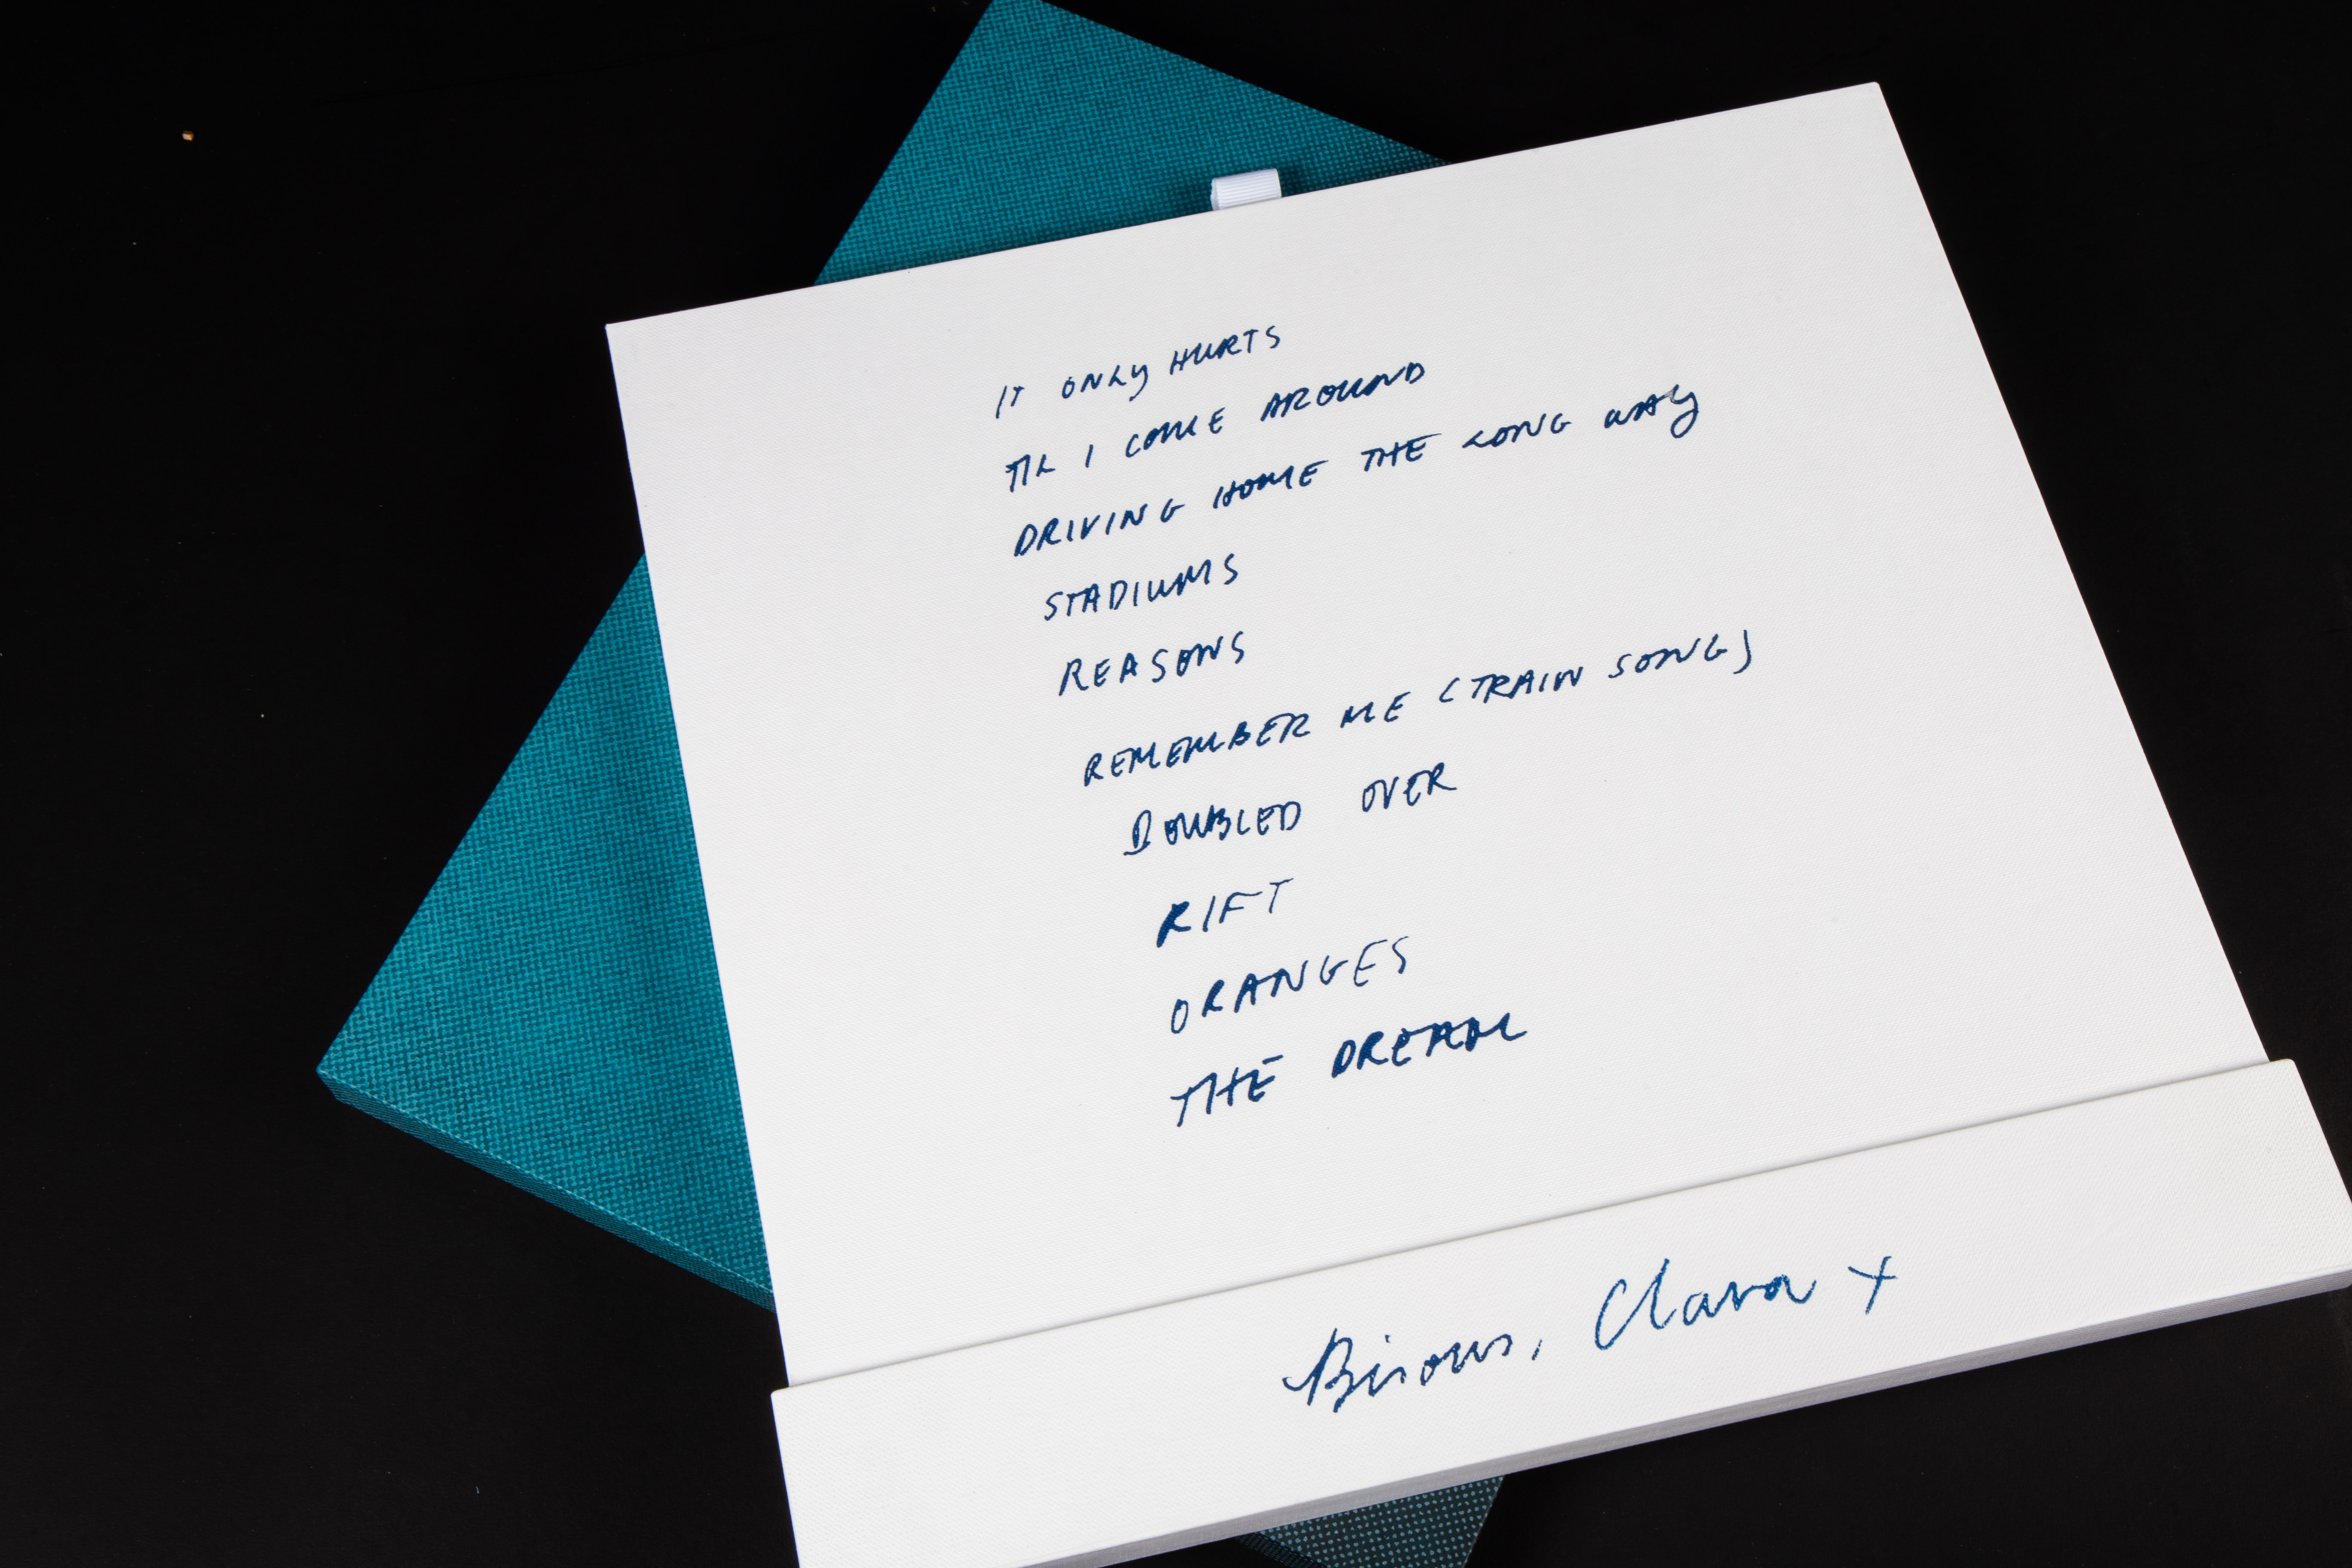 IT ONLY HURTS
TIL I COME AROUND
DRIVING HOME THE LONG WAY
STADIUMS
REASONS
REMEMBER ME (TRAIN SONG)
DOUBLED OVER
RIFT
ORANGES
THE DREAM
Bisous, Clara x